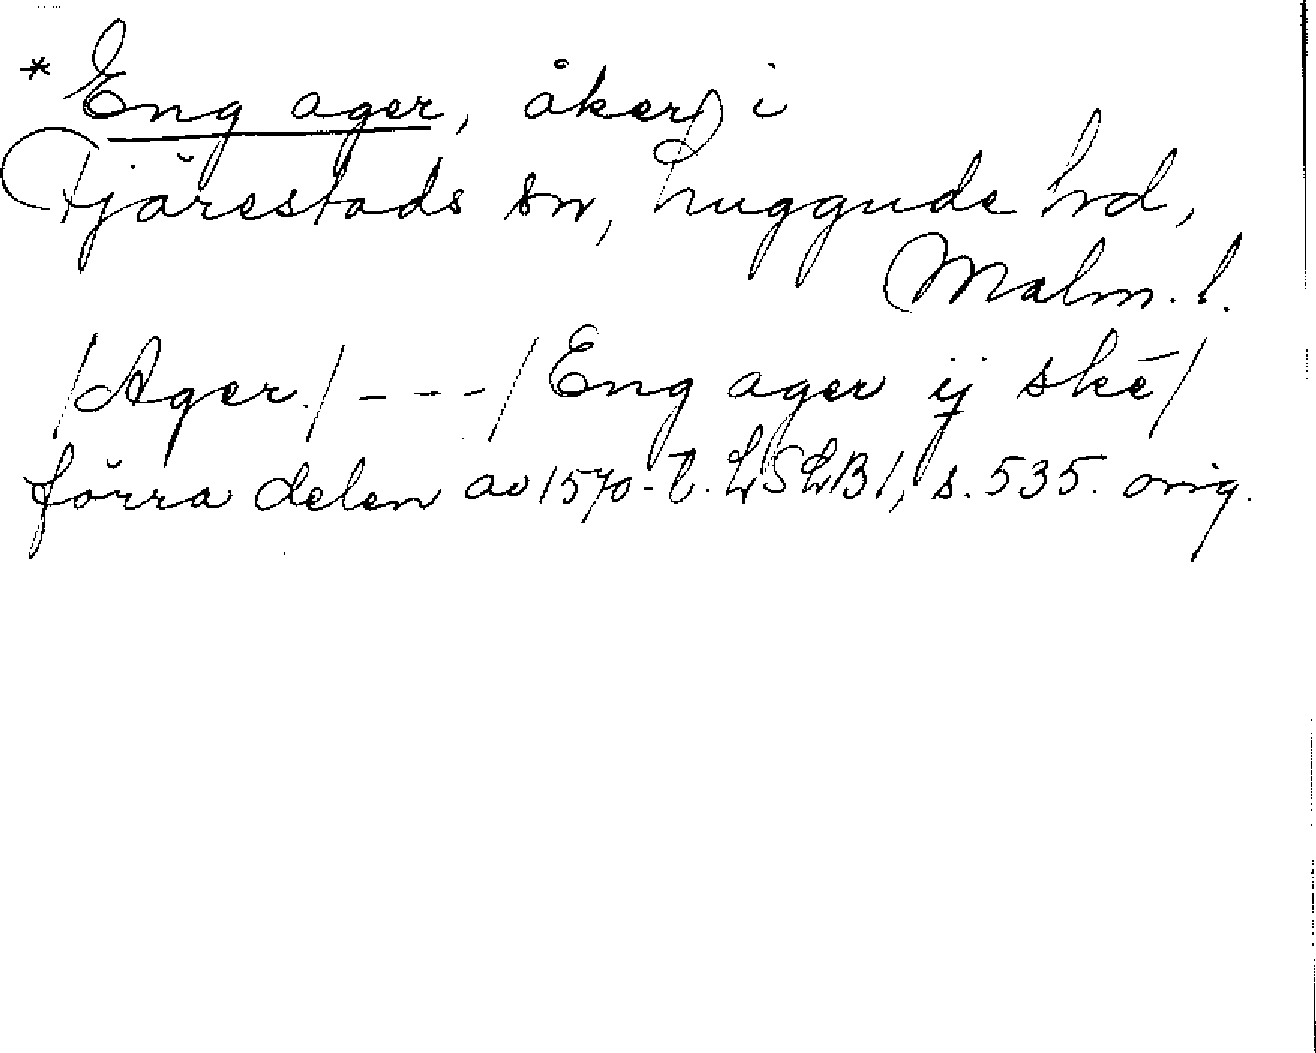 * Eng ager, åker i
Fjärestads sn, Luggude hd,
Malm. l.
/Ager./ - - - / Eng ager ij skē /
förra delen av 1570-t. LSLB 1, s. 535. orig.